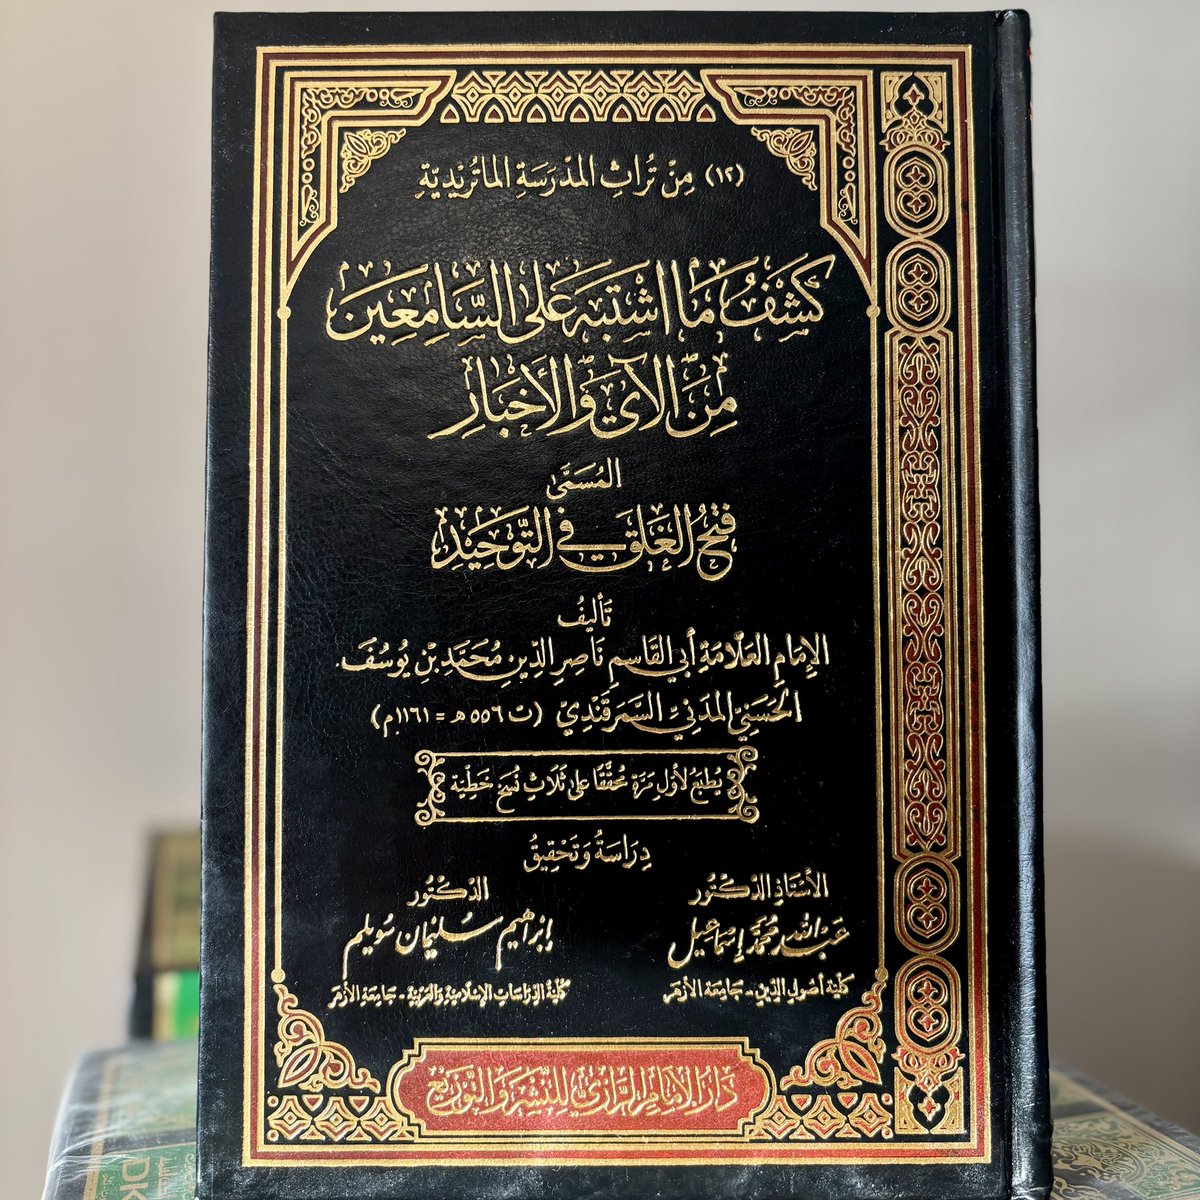 (١٢) مِنْ تُرَاثِ المَدْرَسَةِ المَاتُرِيْدِيَّةِ
كَشْفُ مَا اشْتَبَهَ عَلَى السَّامِعِين
مِنَ الآيِ وَالأَخْبَارِ
المُسَمَّى
فَتْحُ الغَلَقِ فِي التَّوْحِيدِ
تَأْلِيفُ
الإِمَامِ العَلَّامَةِ أَبِي القَاسِمِ نَاصِرِ الدِّينِ مُحَمَّدِ بْنِ يُوسُفَ
الحَسَنِيِّ المَدَنِيِّ السَّمَرْقَنْدِيِّ (ت ٥٥٦ هـ = ١١٦١م)
يُطْبَعُ لأَوَّلِ مَرَّةٍ مُحَقَّقًا عَلَى ثَلَاثِ نُسَخٍ خَطِّيَّةٍ
دِرَاسَةُ وَتَحْقِيقُ
الأُسْتَاذِ الدُّكْتُور
عَبْدِ اللهِ مُحَمَّد إِسْمَاعِيل
كلية أصول الدين - جامعة الأزهر
الدُّكْتُور
إِبْرَاهِيم سُلَيْمَان سُوَيْلِم
كلية الدراسات الإسلامية والعربية - جامعة الأزهر
دَارُ الإِمَامِ الرَّازِي لِلنَّشْرِ وَالتَّوْزِيعِ
DK